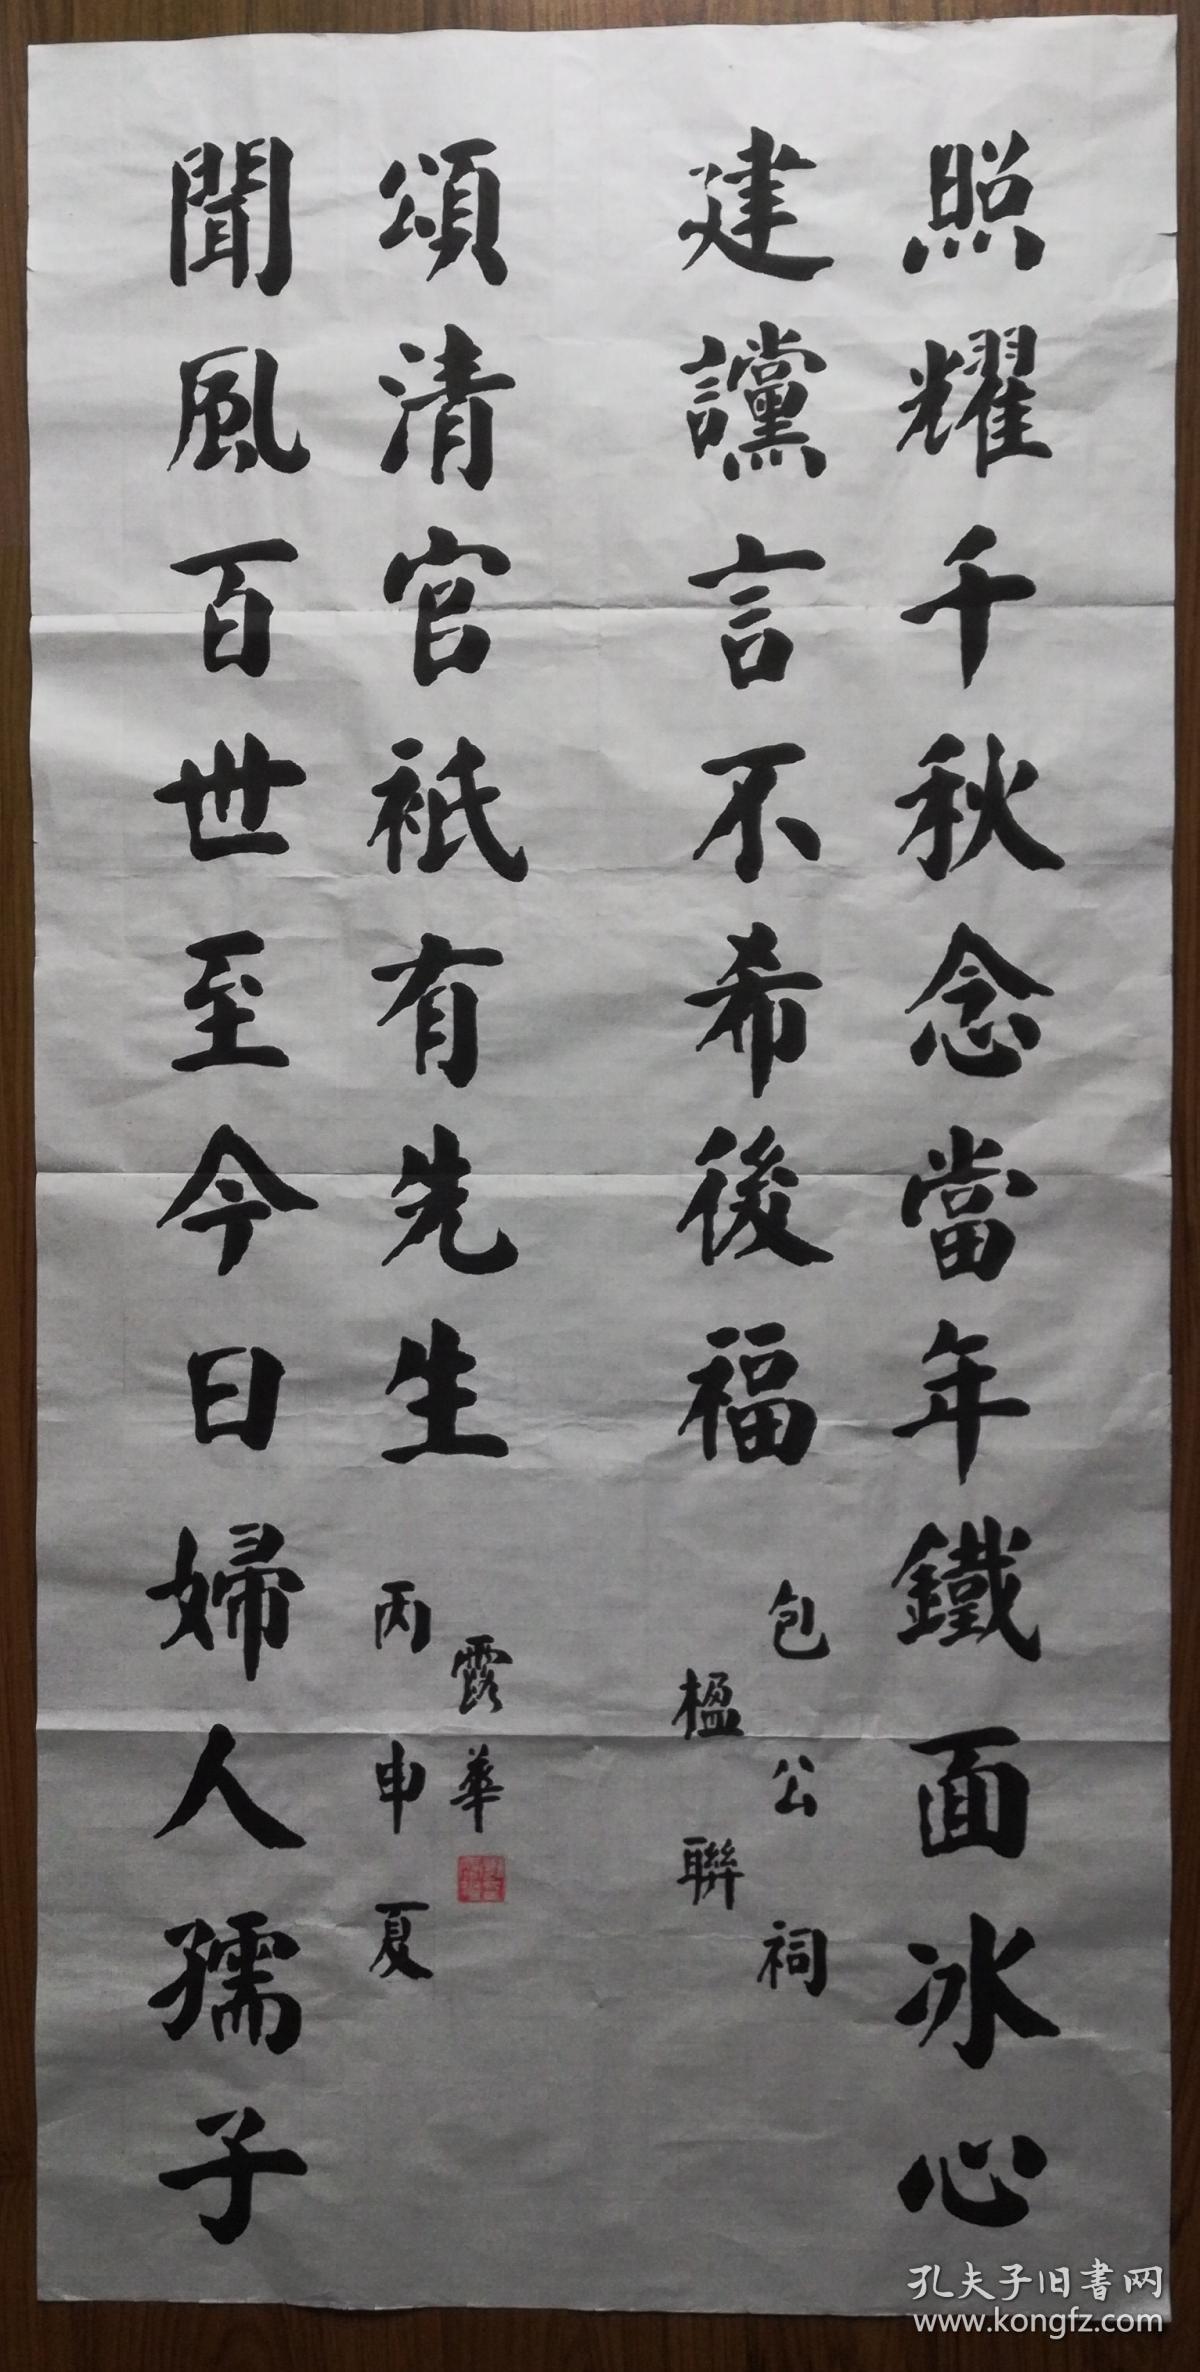 照耀千秋念當年鐵面冰心
建讜言不希後福
包公祠
楹聯
聞風百世至今日婦人孺子
頌清官衹有先生
丙申夏
露華
孔夫子旧書网
www.kongfz.com